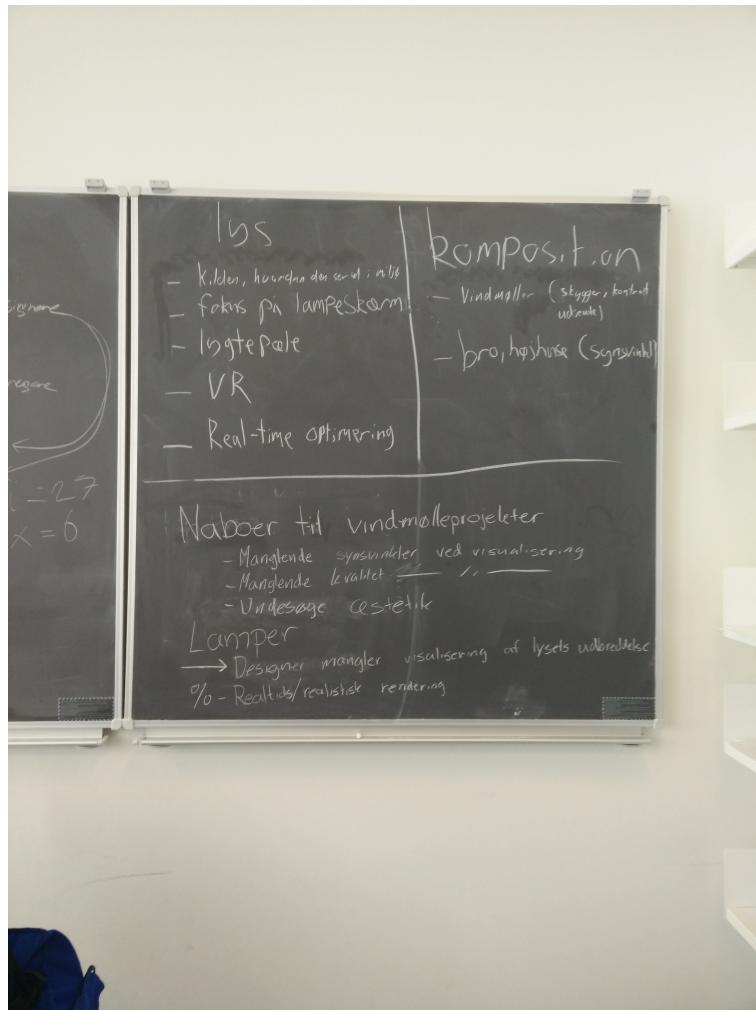 signere
i = 27
x = 6
lys
- Kilden, hvordan den ser ud i miljø
- fokus på lampeskærm
- lygtepæle
- VR
- Real-time optimering
komposition
- Vindmøller (skygger, kontrast
udseende)
- bro, højhuse (synsvinkel)
Naboer til vindmølleprojekter
- Manglende synsvinkler ved visualisering
- Manglende kvalitet —— 〃 ——
- Undesøge æstetik
Lamper
→ Designer mangler visualisering af lysets udbreddelse
% - Realtids/realistisk rendering